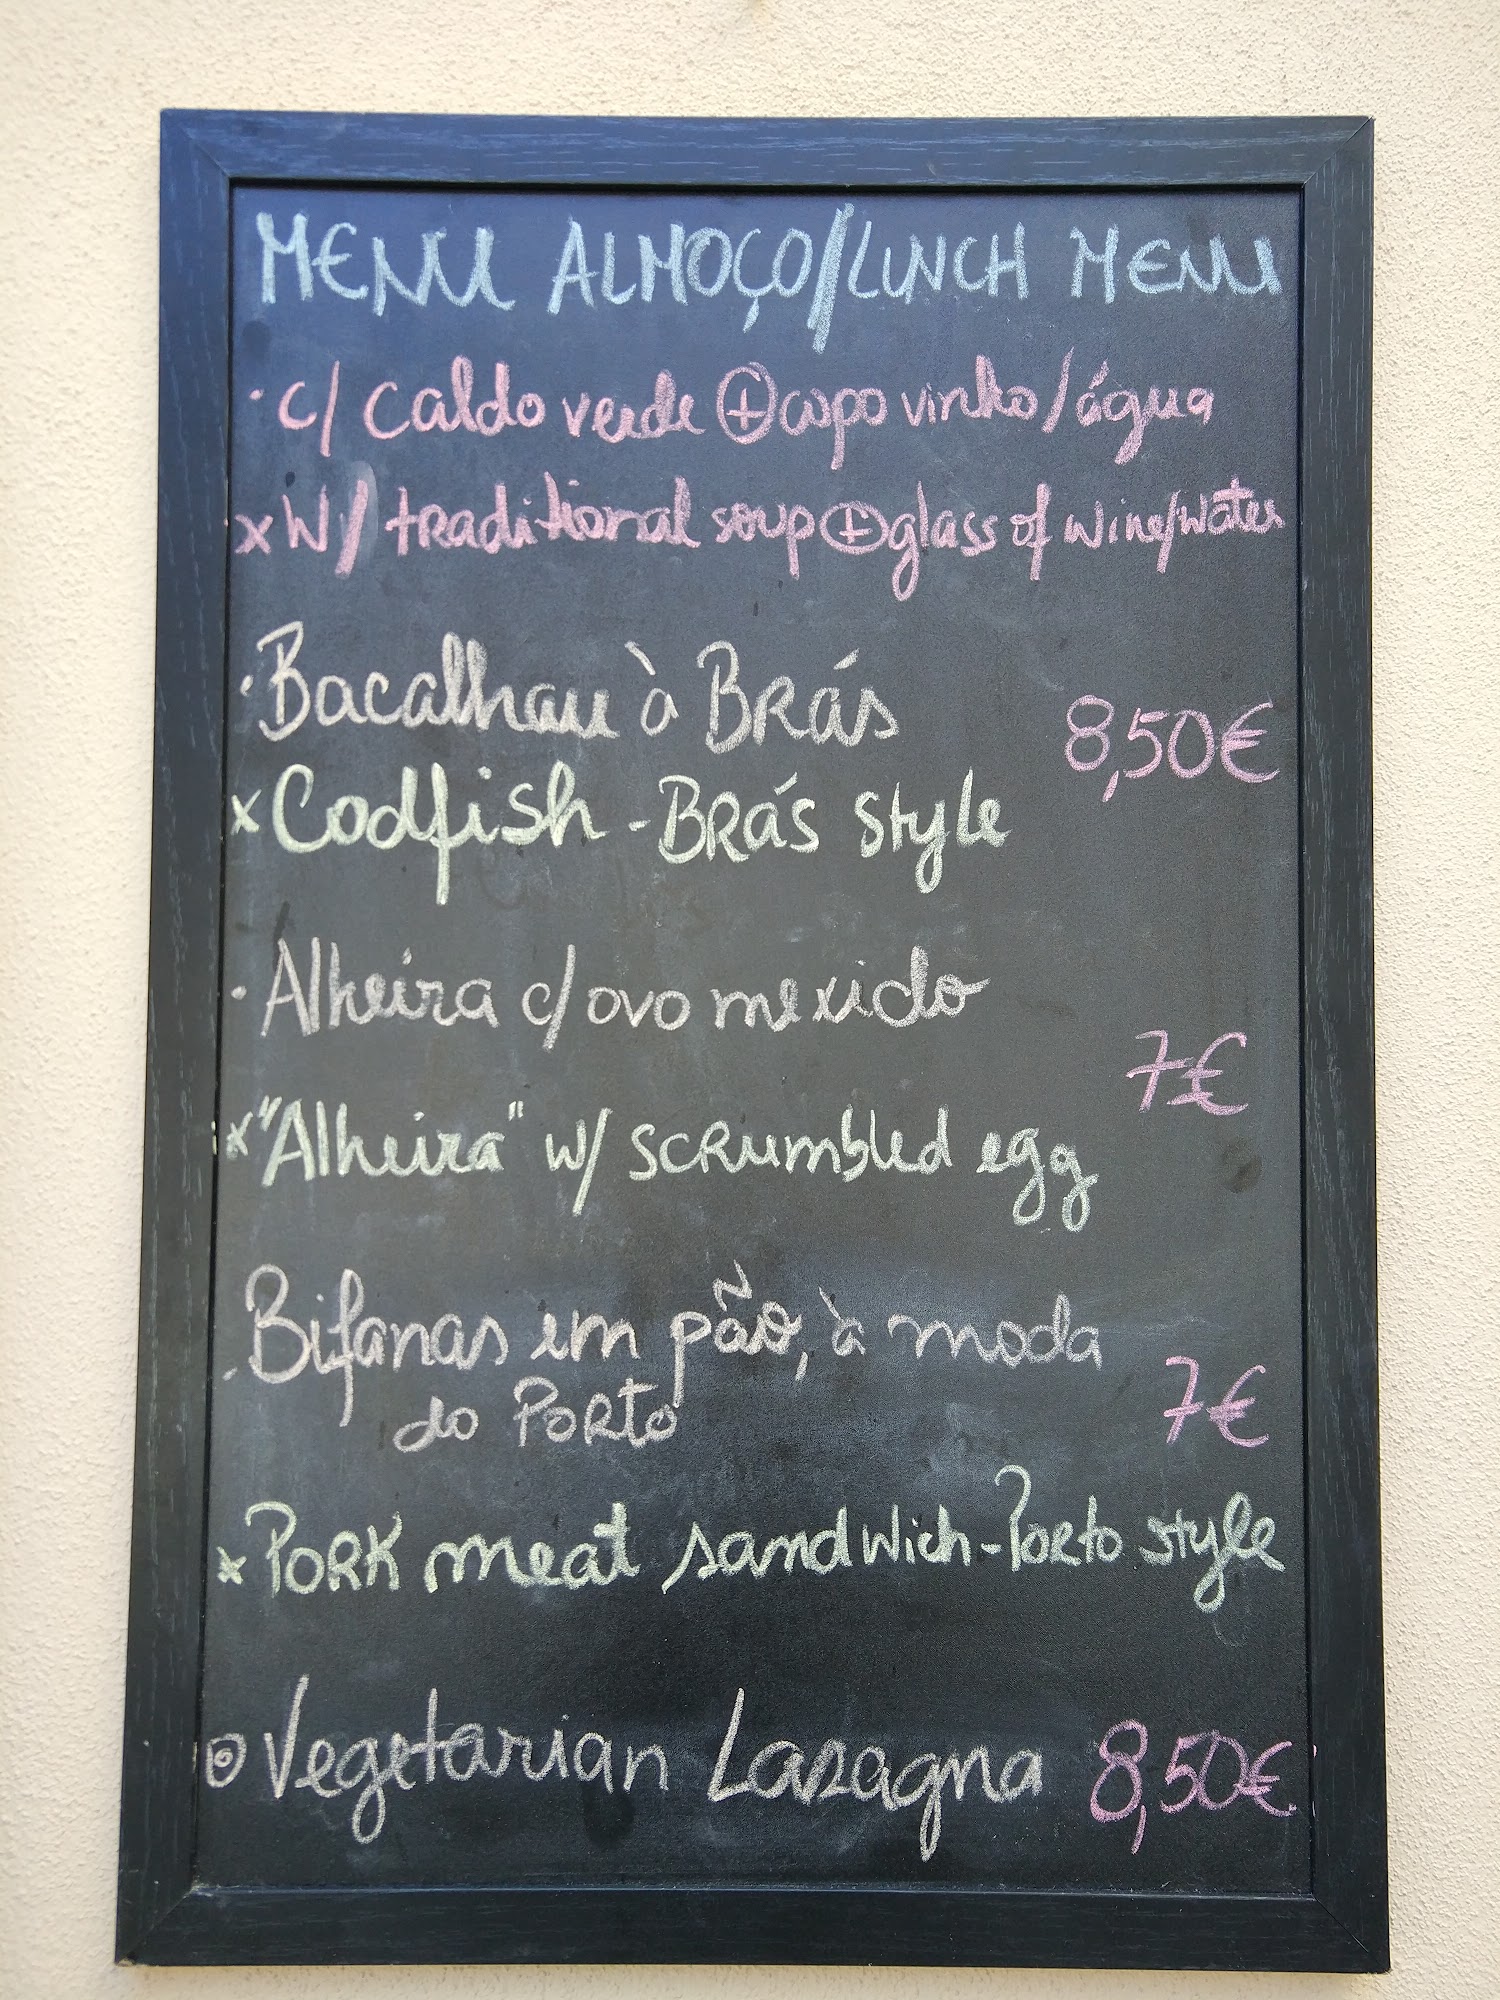 MENU ALMOÇO/LUNCH MENU
· c/ caldo verde ⊕ copo vinho/água
x W/ traditional soup ⊕ glass of wine/water
· Bacalhau à Brás
8,50€
x Codfish - Brás style
· Alheira c/ ovo mexido
7€
x "Alheira" w/ scrumbled egg
· Bifanas em pão, à moda
do Porto
7€
x Pork meat sandwich - Porto style
⊙ Vegetarian Lasagna 8,50€